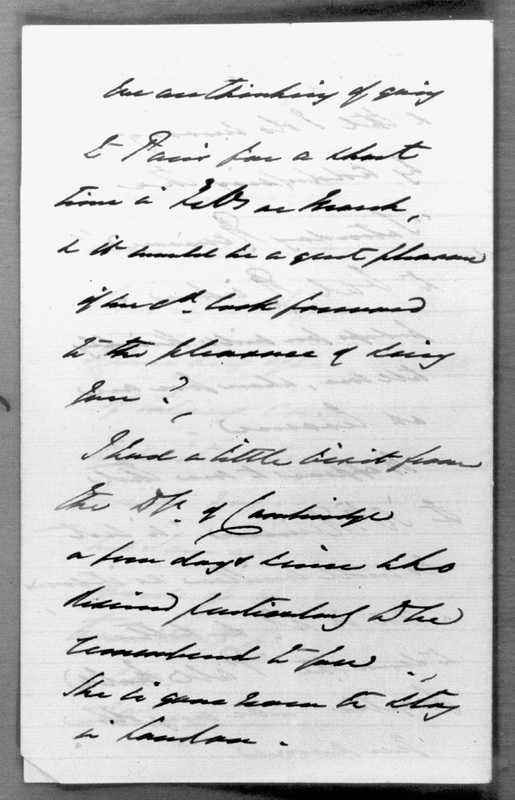 We are thinking of going
to Paris for a short
time in Feb. or March,
& it would be a great pleasure
if we cd. look forward
to the pleasure of seeing
you?
I had a little visit from
the Dss. of Cambridge
a few days since who
desired particularly to be
remembered to you.
She is gone now to stay
in London.